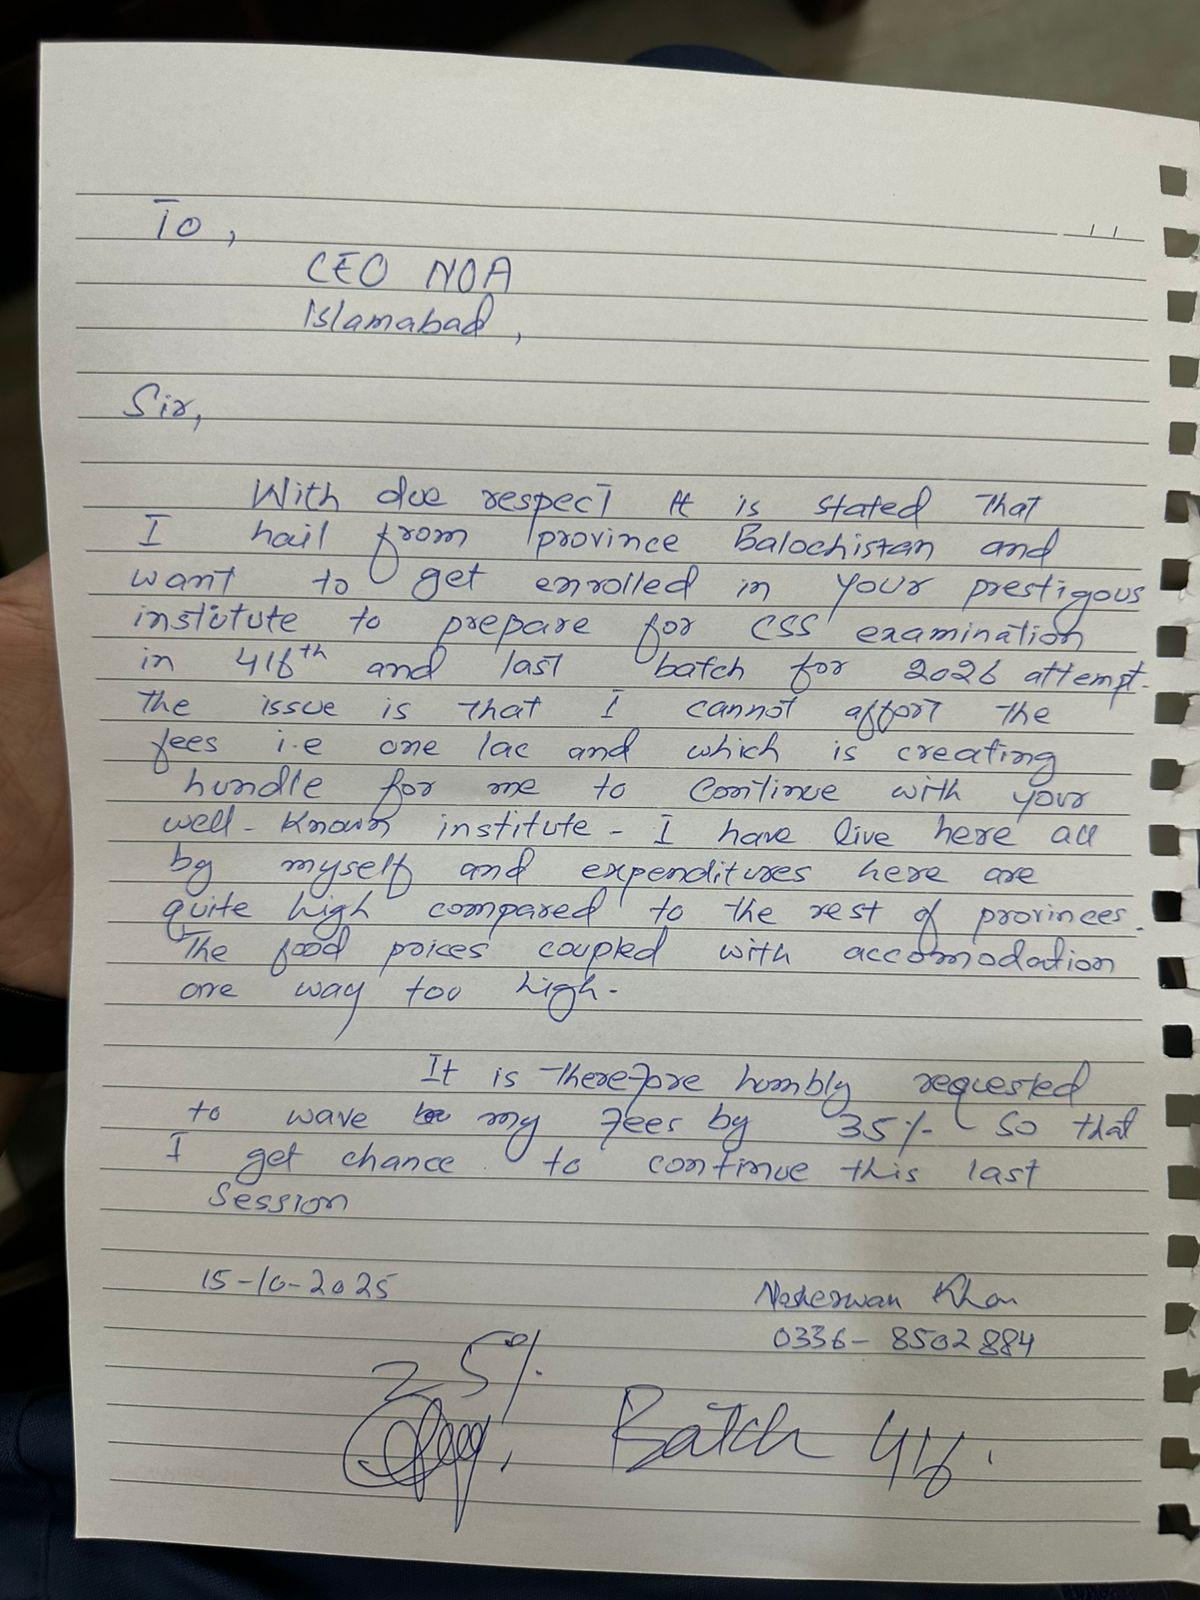 To,
CEO NOA
Islamabad,
Sir,
With due respect It is stated that
I hail from province Balochistan and
want to get enrolled in your prestigous
institute to prepare for CSS examination
in 416th and last batch for 2026 attempt.
The issue is that I cannot affort the
fees i.e one lac and which is creating
hundle for me to continue with your
well-known institute - I have live here all
by myself and expenditures here are
quite high compared to the rest of provinces.
The food prices coupled with accomodation
are way too high.
It is therefore humbly requested
to wave my fees by 35% so that
I get chance to continue this last
session
15-10-2025
Nosherwan Khan
0336-8502884
25%
Batch 416.